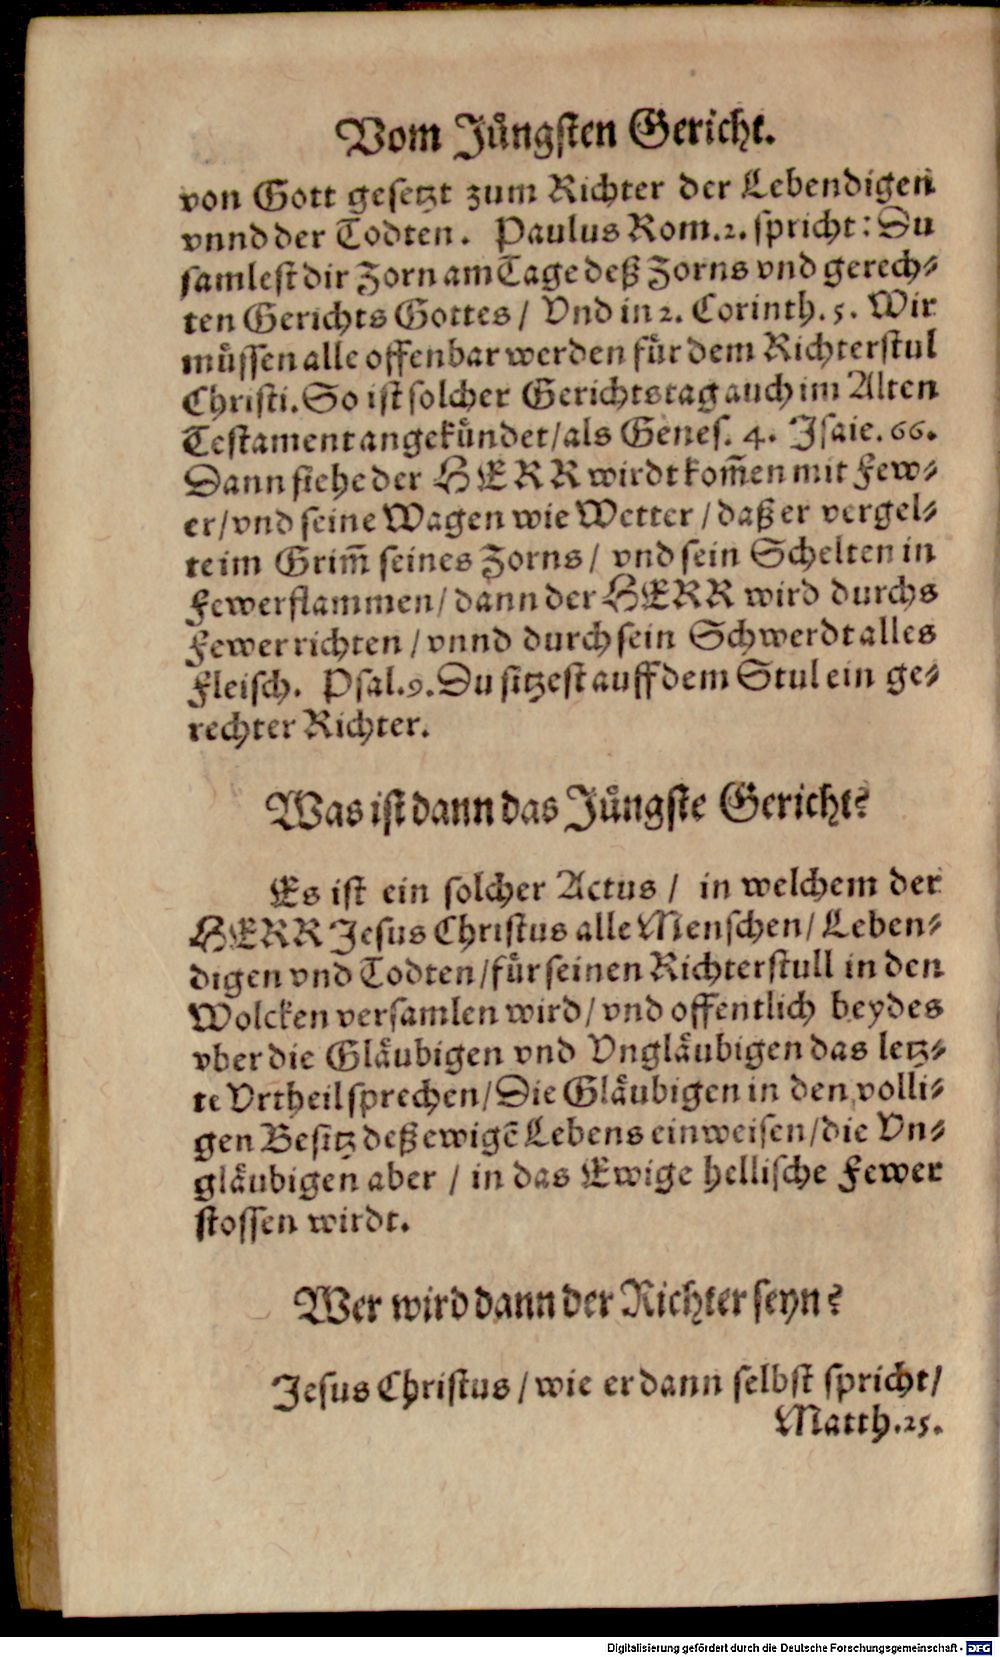 Vom Jüngsten Gericht.
von Gott gesetzt zum Richter der Lebendigen
vnnd der Todten. Paulus Rom. 2. spricht: Du
samlest dir Zorn am Tage deß Zorns vnd gerech-
ten Gerichts Gottes / Vnd in 2. Corinth. 5. Wir
müssen alle offenbar werden für dem Richterstul
Christi. So ist solcher Gerichtstag auch im Alten
Testament angekündet / als Genes. 4. Jsaie. 66.
Dann siehe der HERR wirdt kom̃en mit Few-
er / vnd seine Wagen wie Wetter / daß er vergel-
te im Grim̃ seines Zorns / vnd sein Schelten in
Fewerflammen / dann der HERR wird durchs
Fewer richten / vnnd durch sein Schwerdt alles
Fleisch. Psal. 9. Du sitzest auff dem Stul ein ge-
rechter Richter.
Was ist dann das Jüngste Gericht?
Es ist ein solcher Actus / in welchem der
HERR Jesus Christus alle Menschen / Leben-
digen vnd Todten / für seinen Richterstull in den
Wolcken versamlen wird / vnd offentlich beydes
vber die Gläubigen vnd Vngläubigen das letz-
te Vrtheil sprechen / Die Gläubigen in den volli-
gen Besitz deß ewigẽ Lebens einweisen / die Vn-
gläubigen aber / in das Ewige hellische Fewer
stossen wirdt.
Wer wird dann der Richter seyn?
Jesus Christus / wie er dann selbst spricht /
Matth. 25.
Digitalisierung gefördert durch die Deutsche Forschungsgemeinschaft - DFG